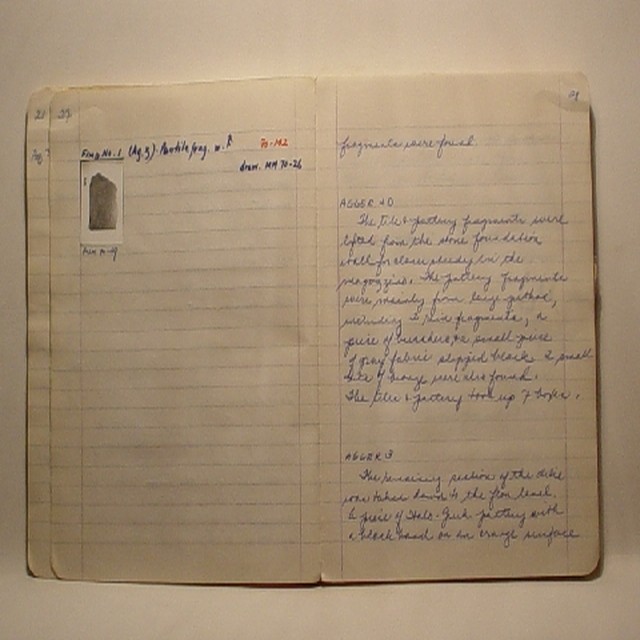 27
Find No. 1 (Ag. 3). Pantile frag. w. R
70-142
draw. MM 70-26
fragments were found.
AGGER 20
The tile & pottery fragments were
lifted from the stone foundation
wall for closer study in the
magazzino. The pottery fragments
were mainly from large pithoi,
including 2 rim fragments, a
piece of bucchero & a small piece
of gray fabric slipped black. 2 small
bits of bronze were also found.
The tile & pottery took up 7 boxes.
AGGER 3
The remaining section of the tile
was taken down to the floor level.
A piece of Italo-Greek pottery with
a black band on an orange surface